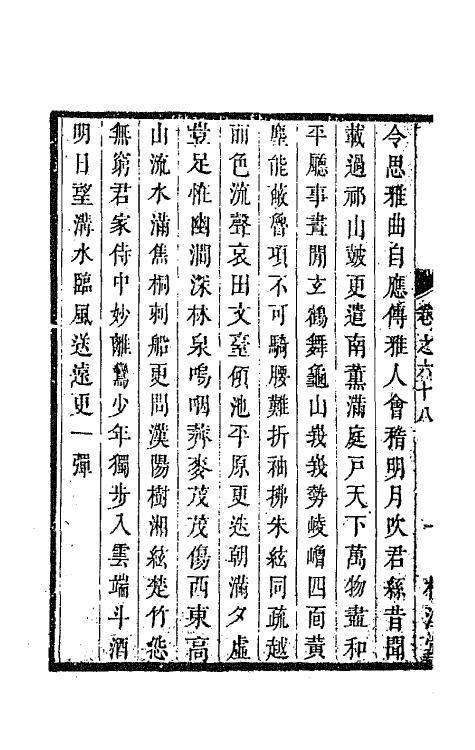 令思雅曲自應傳雅人會稽明月吹君絲昔聞
載過祁山皷更遣南薰滿庭戶天下萬物盡和
平廳事晝閒玄鶴舞龜山峩峩勢崚嶒四面黃
塵能蔽魯項不可騎腰難折袖拂朱絃同疏越
面色流聲哀田文臺傾池平原更迭朝滿夕虛
豈足惟幽澗深林泉嗚咽薺麥茂茂傷西東高
山流水滿焦桐刺船更問漢陽樹湘絃楚竹怨
無窮君家侍中妙離鸞少年獨步入雲端斗酒
明日望溝水臨風送遠更一彈
卷之六十八
一